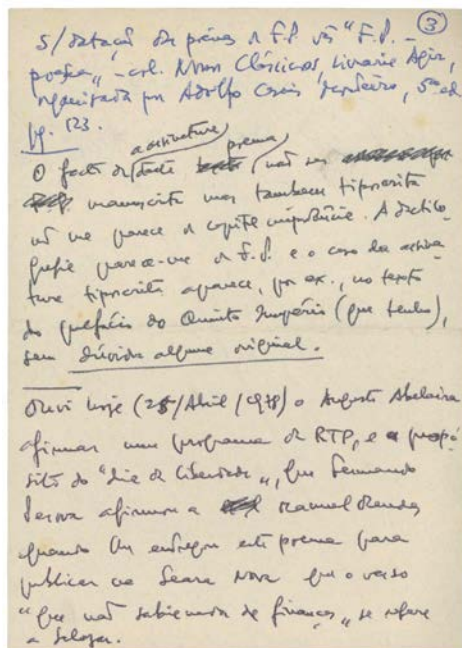 3
s/ datação de poemas de F.P. vês "F.P. -
poesia" - col. Nossos Clássicos, Livraria Agir,
organizada por Adolfo Casais Monteiro, 5ª ed
pg. 123.
a assinatura
poema
O facto de deste não ser
manuscrita mas também tiposcrita
não me parece de capital importância. A dactilo-
grafia parece-me de F.P. e o caso da assina-
tura tiposcrita aparece, por ex., no texto
do prefácio do Quinto Império (que tenho),
sem dúvida alguma original.
Ouvi hoje (25/Abril/1978) o Augusto Abelaira
afirmar num programa da RTP, e a propó
sito do "dia da Liberdade", que Fernando
Pessoa afirmou a Manuel Mendes
quando lhe entregou este poema para
publicar na Seara Nova que o verso
"que não sabia nada de finanças" se refere
a Salazar.